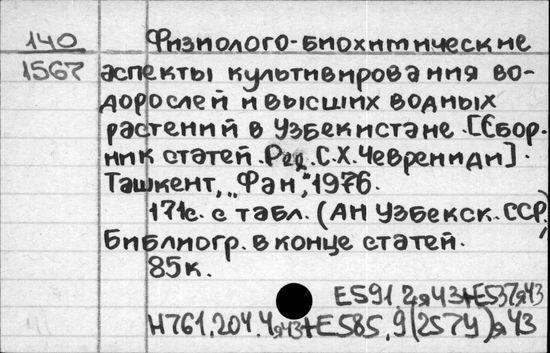 140 Физиолого-биохитические
1567 аспекты культивирования во-
дорослей и высших водных
растений в Узбекистане. [Сбор-
ник статей. Ред. С.Х. Чевренида].
Ташкент, "Фан", 1976.
171с. с табл. (АН Узбекск. ССР)
Библиогр. в конце статей.
85к.
Е591.2я43+Е537я43
Н761.204.4я43+Е585.9(2574)я43